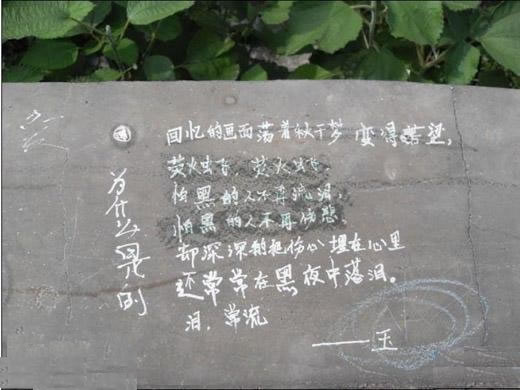 回忆的画面荡着秋千梦变得落望,
荧火虫飞 荧火虫飞
怕黑的人不再流泪,
怕黑的人不再伤悲
却深深的把伤心埋在心里
还常常在黑夜中落泪。
泪,常流
——玉
为什么是的